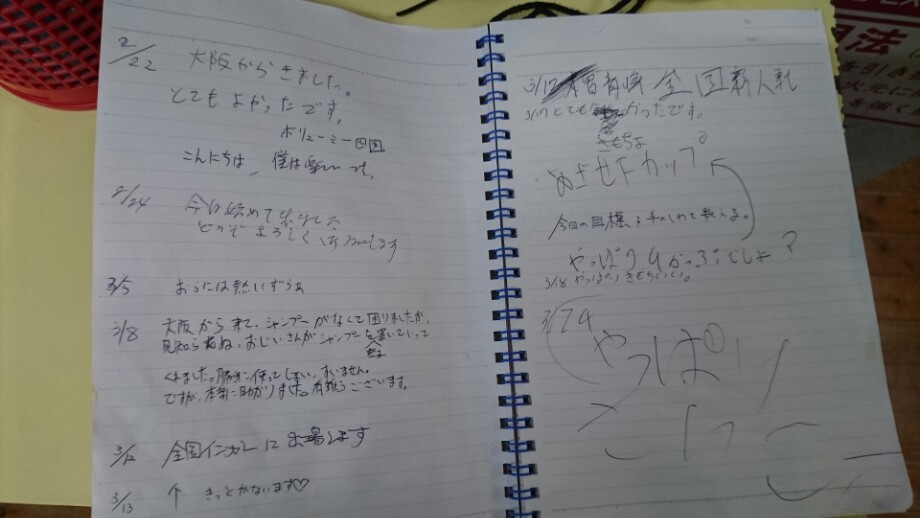 2/22 大阪からきました。
とてもよかったです。
ボリューミー
こんにちは、僕は楽しいです。
2/24 今日始めて来ました
どうぞよろしくお願いします
3/5 おふには熱いずうぁ
3/8 大阪から来て、シャンプーがなくて困りましたが、
見知らぬおじいさんがシャンプーを置いていって
くれました。勝手に使ってしまい、すいません。
ですが、本当に助かりました。有難うございます。
3/12 全国インカレに出場します
3/13 ↑ きっとかないます♡
3/17 全国新人戦
3/17 とても かったです。
きもちよ
めざせFカップ
今日の目標 を 教える。
やっぱり かっぷでしょ?
3/18 やっぱりきもちいい。
3/24
やっぱり